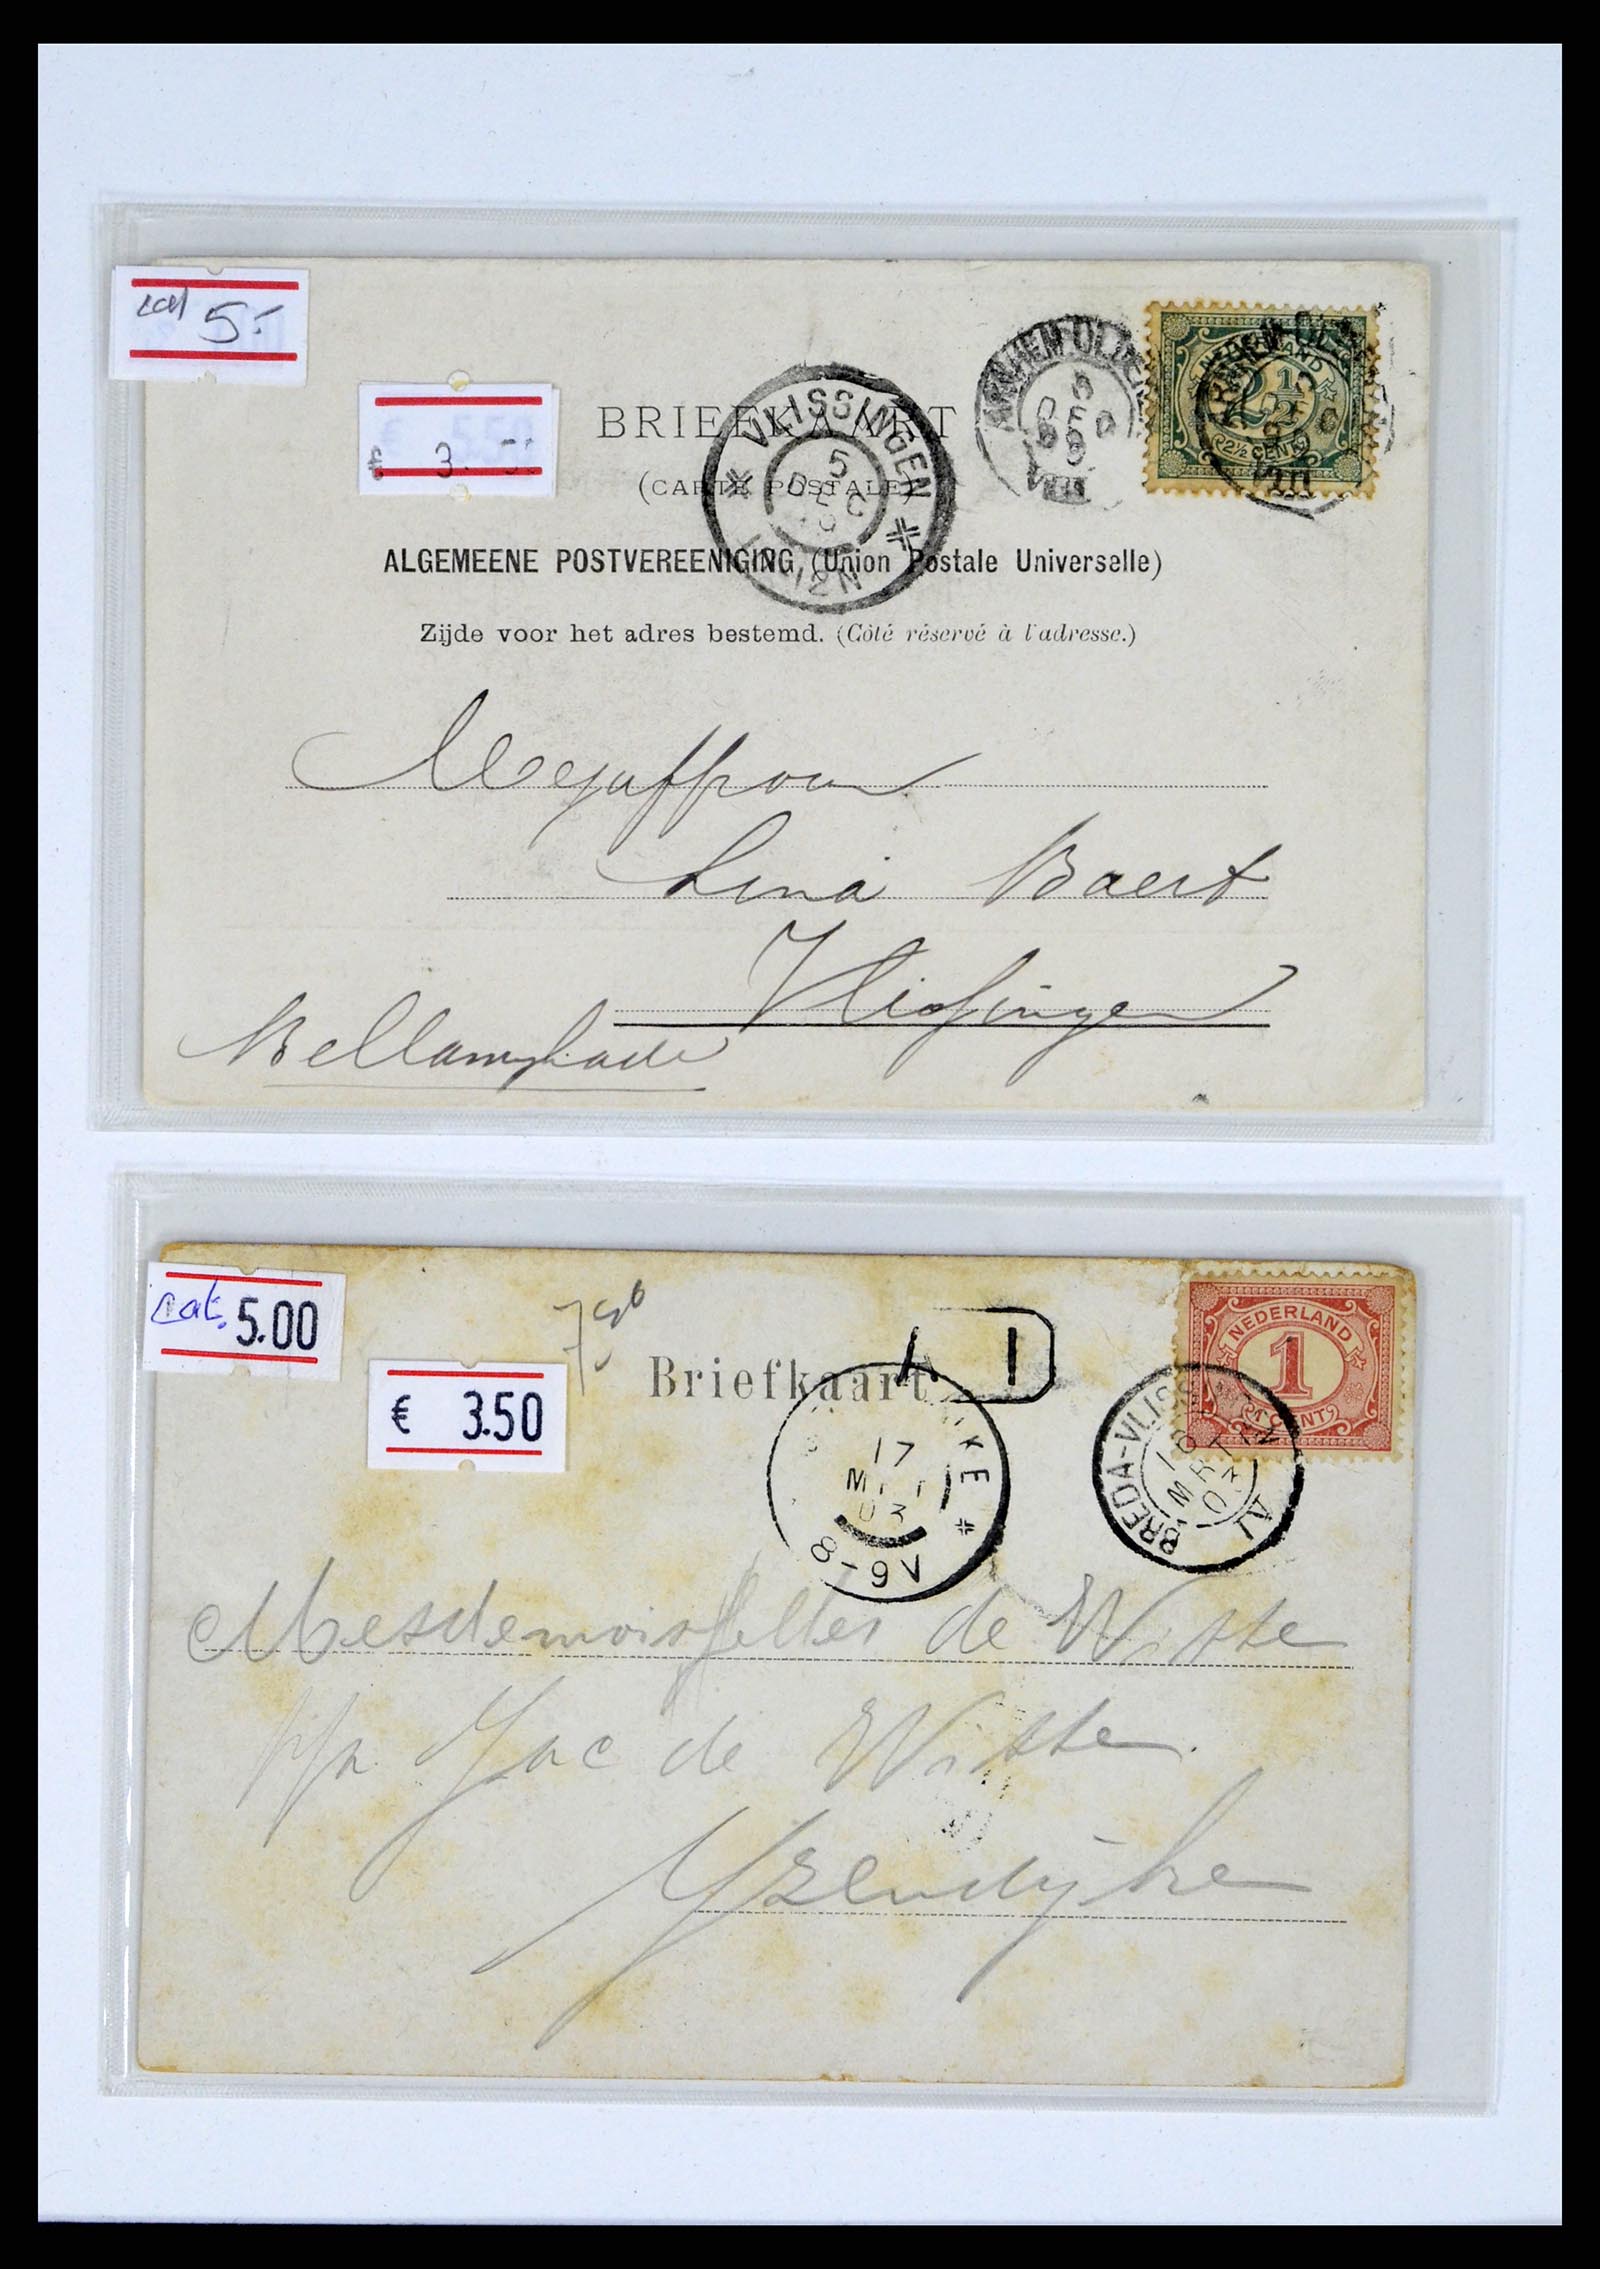 cat 5.-
€ 3.50
BRIEFKAART
(CARTE POSTALE)
VLISSINGEN
5
DEC
ARNHEM-OLDENZ
5
DEC
99
VIII
NEDERLAND
2½
2½ CENT
ALGEMEENE POSTVEREENIGING (Union Postale Universelle)
Zijde voor het adres bestemd. (Côté réservé à l'adresse.)
Mejuffrouw
Lina Baert
Vlissingen
Bellamykade
cat. 5.00
€ 3.50
Briefkaart
1
NEDERLAND
1
1 CENT
BREDA-VLISS
MRT
03
IV
17
MRT
03
8-9V
Mesdemoiselles de Witte
p/a Jac de Witte.
Yzendijke